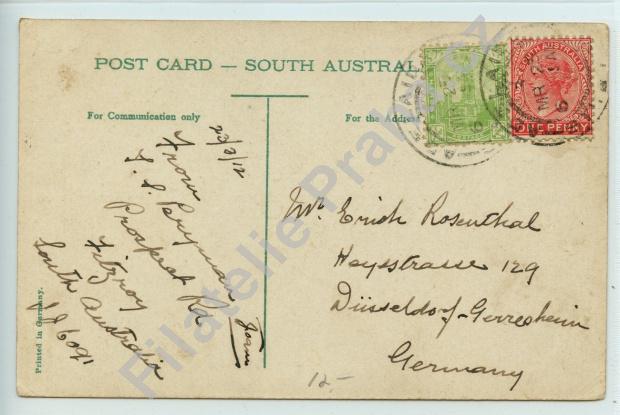 POST CARD — SOUTH AUSTRAL
For Communication only
For the Address
23/3/12
From
Prospect Rd
Fitzroy
South Australia
Mr. Erich Rosenthal
Heyestrasse 129
Düsseldorf-Gerresheim
Germany
12.-
Printed in Germany.
SOUTH AUSTRALIA
ONE PENNY
Filatelie Praha.cz